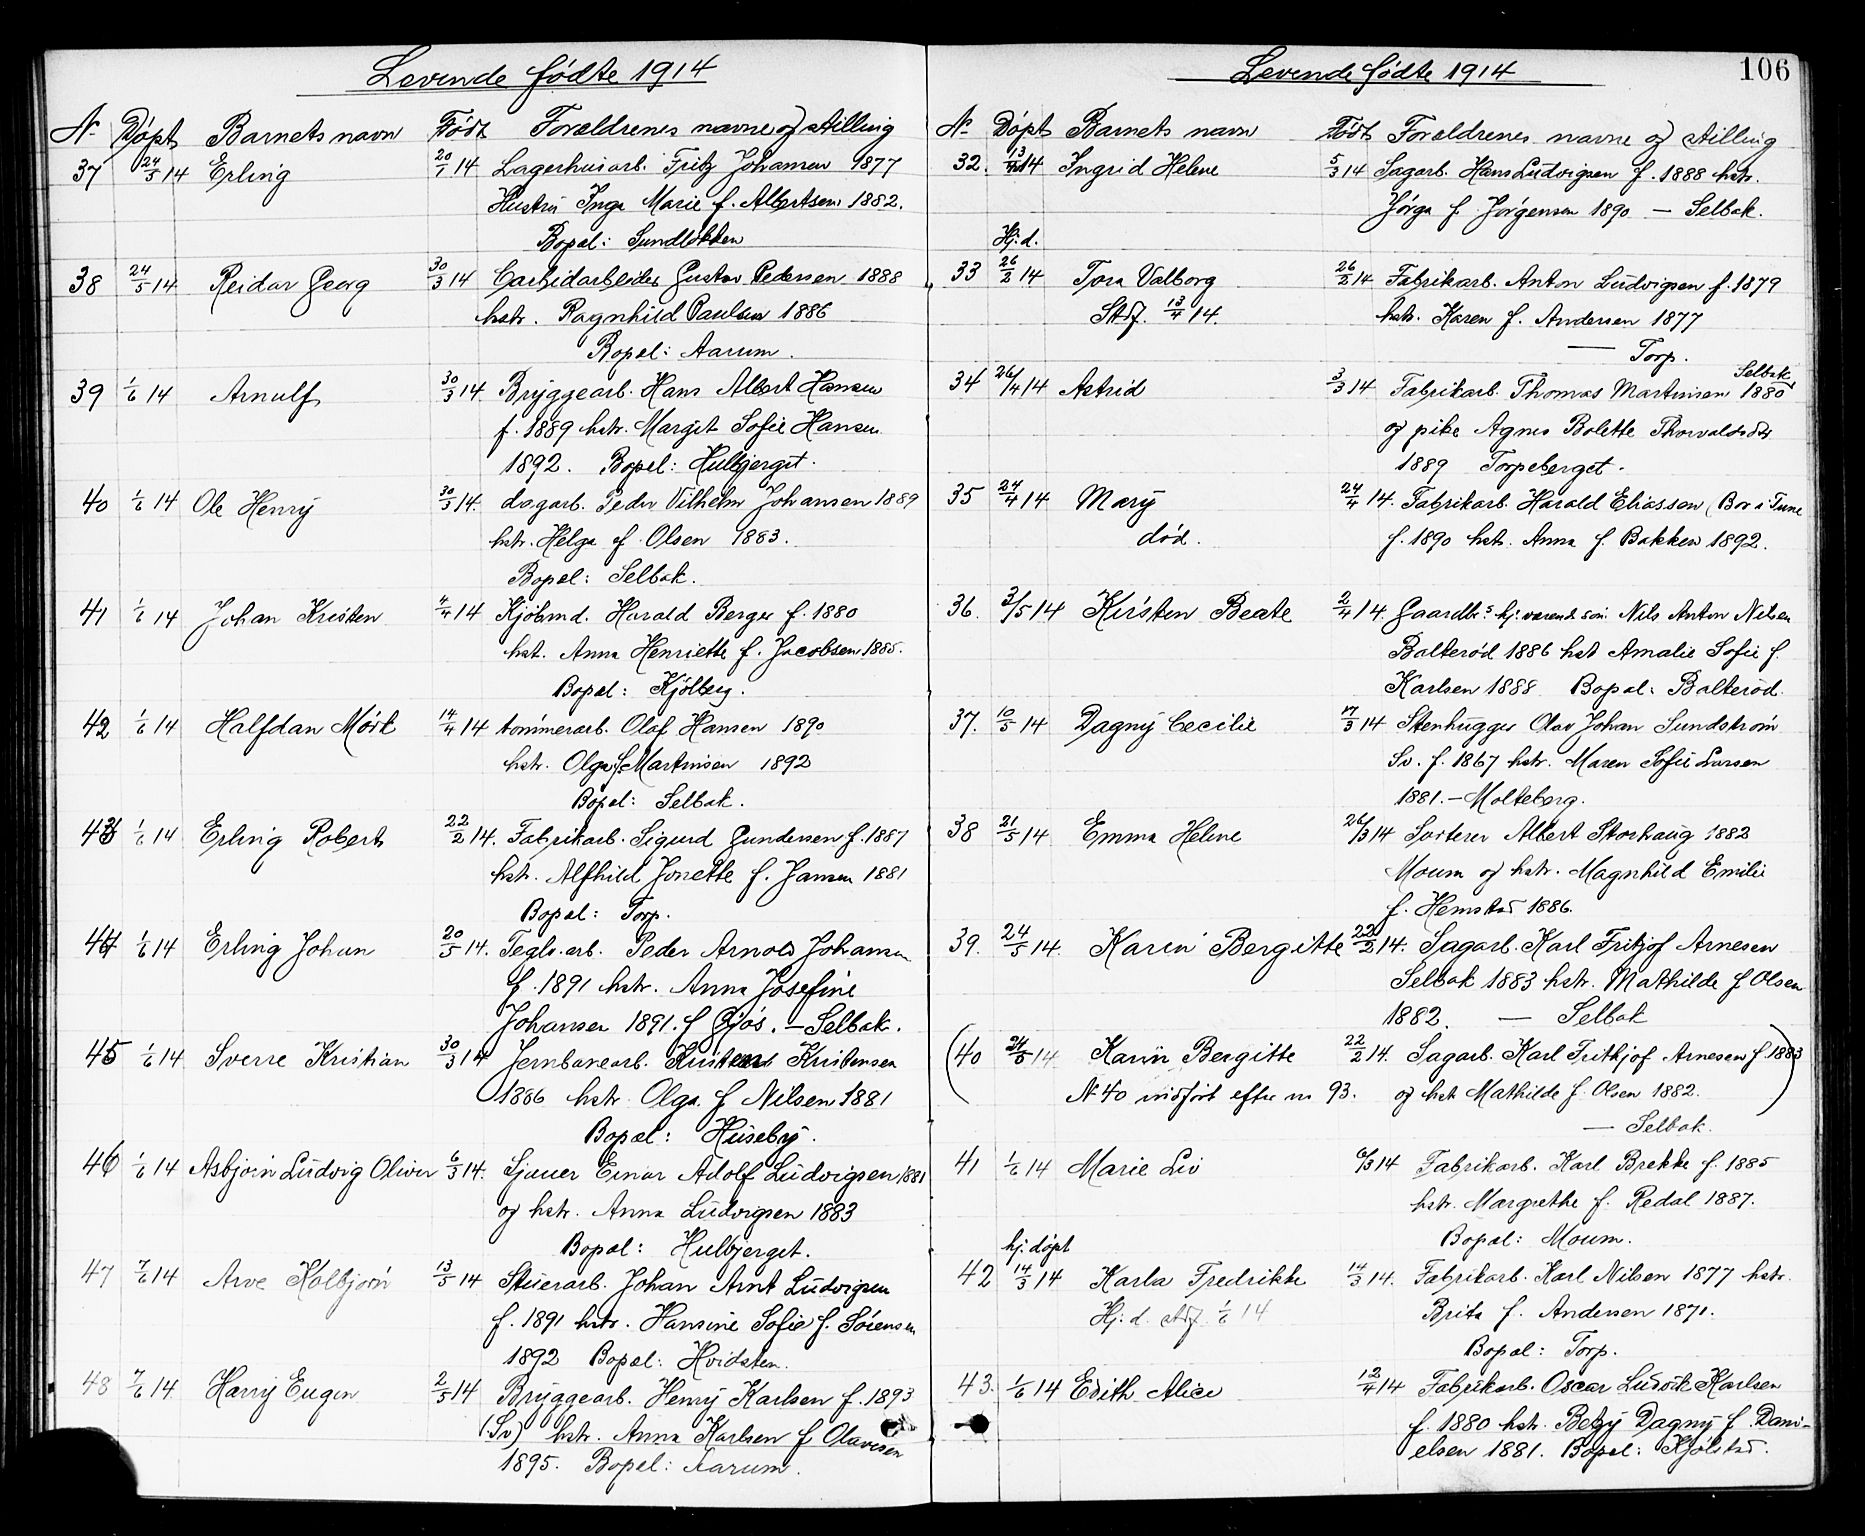 Levende fødte 1914
Nr Døpt Barnets navn Født Forældrenes navne og stilling
37 24/5 14 Erling 20/1 14 Lagerhusarb. Fritz Johansen 1877
Hustru Inga Marie f. Albertsen 1882.
Bopæl: Sundløkken
38 24/5 14 Reidar Georg 30/3 14 Carbidarbeider Gustav Pedersen 1888
hstr. Ragnhild Paulsen 1886
Bopæl: Aarum.
39 1/6 14 Arnulf 30/3 14 Bryggearb. Hans Albert Hansen
f. 1889 hstr. Margit Sofie Hansen
1892. Bopæl: Hulbjerget.
40 1/6 14 Ole Henry 30/3 14. dagarb. Peder Vilhelm Johansen 1889
hstr. Helga f. Olsen 1883.
Bopæl: Selbak.
41 1/6 14 Johan Kristen 4/4 14 Kjøbmd. Harald Berger f. 1880
hst. Anna Henriette f. Jacobsen 1885.
Bopæl: Kjølberg.
42 1/6 14 Halfdan Mørk 14/4 14 tømmerarb. Olaf Hansen 1890
hstr. Olga f. Martinsen 1892
Bopæl: Selbak.
43 1/6 14 Erling Robert 22/2 14. Fabrikarb. Sigurd Gundersen f. 1887
hstr. Alfhild Jonette f. Jansen 1881
Bopæl: Torp.
44 1/6 14 Erling Johan 20/5 14. Tegls.arb. Peder Arnold Johansen
f. 1891 hstr. Anna Josefine
Johansen 1891. f Gjøs. – Selbak.
45 1/6 14 Sverre Kristian 30/3 14 Jernbanearb. Kristen Kristensen
1886 hstr. Olga f Nilsen 1881
Bopæl: Huseby.
46 1/6 14 Asbjørn Ludvig Oliver 6/3 14. Sjauer Einar Adolf Ludvigsen 1881
og hstr. Anna Ludvigsen 1883
Bopæl: Hulbjerget.
47 7/6 14 Arve Kolbjørn 13/5 14 Stuerarb. Johan Arnt Ludvigsen
f. 1891 hstr. Hansine Sofie f. Sørensen
1892 Bopæl: Hvidsten.
48 7/6 14 Harry Eugen 2/5 14 Bryggearb. Henry Karlsen f. 1893
(Sv) hstr. Anna Karlsen f Olavesen
1895. Bopæl: Aarum.
Levende fødte 1914 106
Nr Døpt Barnets navn Født Forældrenes navne og stilling
32. 13/4 14 Ingrid Helene 5/3 14 Sagarb. Hans Ludvigsen f. 1888 hstr.
Jørga f Jørgensen 1890 – Selbak.
Hj.d.
33 26/2 14 Tora Valborg 26/2 14 Fabrikarb. Anton Ludvigsen f. 1879
Stdf. 13/4 14. hstr. Karen f. Andersen 1877
— Torp.
Selbak
34 26/4 14 Astrid 3/3 14 Fabrikarb. Thomas Martinsen 1880
og pike Agnes Bolette Thorvaldsdtr
1889 Torpeberget.
35 24/4 14 Mary 24/4 14. Fabrikarb. Harald Eliassen (Bor i Tune
død. f. 1890 hstr. Anna f. Bakken 1892.
36. 3/5 14 Kirsten Beate 2/4 14. Gaardbr.s hj: værende søn Nils Anton Nilsen
Balterød 1886 hst Amalie Sofie f.
Karlsen 1888 Bopæl: Balterød.
37. 10/5 14 Dagny Cecilie 17/3 14 Stenhugger Olav Johan Sundstrøm
Sv. f. 1867 hstr. Maren Sofie Larsen
1881. – Molteberg.
38 21/5 14 Emma Helene 26/3 14 Sorterer Albert Storhaug 1882
Moum og hstr. Magnhild Emilie
f. Hemstad 1886.
39. 24/5 14. Karin Bergitte 22/2 14. Sagarb. Karl Fritjof Arnesen
Selbak 1883 hstr. Mathilde f Olsen
1882. — Selbak
(40 24/5 14 Karin Bergitte 22/2 14. Sagarb. Karl Frithjof Arnesen f. 1883
N 40 indført efter nr 93. og hst Mathilde f. Olsen 1882.)
— Selbak.
41 1/6 14 Marie Liv 6/3 14 Fabrikarb. Karl Brekke f. 1885
hstr. Margrethe f. Redal 1887.
Bopæl: Moum.
hj. døpt
42 14/3 14 Karla Fredrikke 14/3 14. Fabrikarb. Karl Nilsen 1877 hstr.
Hj:d. stdf. 1/6 14 Brita f. Andersen 1871.
Bopæl: Torp.
43. 1/6 14 Edith Alice 12/4 14 Fabrikarb. Oscar Ludvik Karlsen
f. 1880 hstr. Betzy Dagny f. Dani-
elsen 1881. Bopæl: Kjølstad.